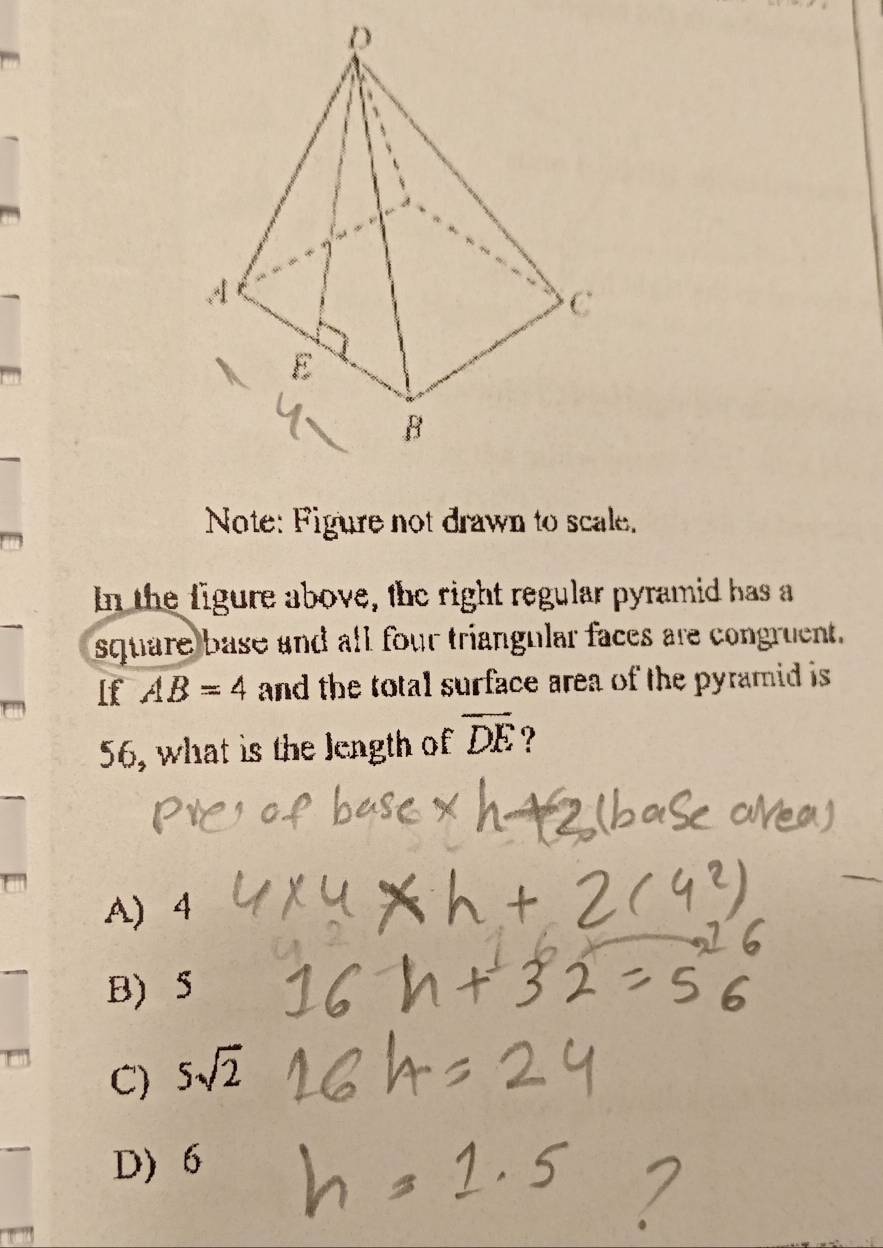 D
A
C
E
4
B
Note: Figure not drawn to scale.
In the figure above, the right regular pyramid has a
square base and all four triangular faces are congruent.
If AB = 4 and the total surface area of the pyramid is
56, what is the length of DE?
of base × h + 2(base area)
A) 4
4×4 × h + 2(4²)
16
B) 5
16h + 32 = 56
C) 5√2
16h = 24
D) 6
h = 1.5 ?